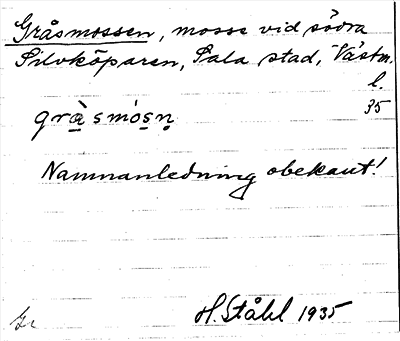 Gråsmossen, mosse vid södra
Silvköparen, Sala stad, Västm.
l.
35
gràsmòsn̥
Namnanledning obekant!
H. Ståhl 1935